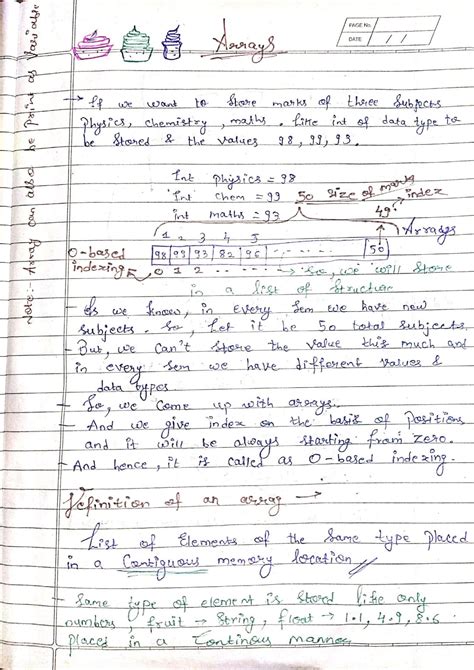 PAGE No.
DATE / /
Arrays
Note:- Array can also be print as Variable
→ If we want to store marks of three subjects
physics, chemistry, maths. like int of data type to
be stored & the values 98, 99, 93.
Int physics = 98
Int chem = 99 50 size of marks
int maths = 93 49 index
1 2 3 4 5 Arrays
0-based 98 99 93 82 96 50
indexing 0 1 2 → So, we will store
in a list of structure
- As we know, in every sem we have new
subjects. So, let it be 50 total subjects.
- But, we can't store the value this much and
in every sem we have different values &
data types
- So, we come up with arrays.
- And we give index on the basis of positions
and it will be always starting from zero.
- And hence, it is called as 0-based indexing.
Definition of an array →
List of Elements of the same type placed
in a Contiguous memory location
- Same type of element is stored like only
numbers, fruit → string, float → 1.1, 4.9, 8.6
places in a Continous manner